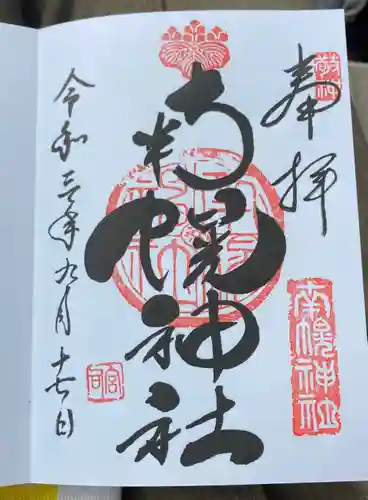 奉拝
南幌神社
南幌神社
令和三年九月十七日
宮司